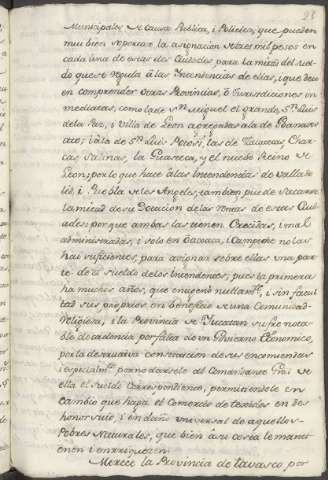 23
Municipales de Causa Publica, i Politica, que pueden
mui bien soportar la asignacion de tres mil pesos en
cada una de estas dos Ciudades para la mitad del suel-
do que se regula á las Intendencias de ellas, i que deve-
en comprender otras Provincias, ó Jurisdiciones in-
mediatas, como la de Sn. Miguel el grande, Sn. Luis
de la Paz, i Villa de Leon agregadas a la de Guanaxu-
ato; i á la de Sn. Luis Potosi, las de Charcas,
Salinas, la Guasteca, y el nuebo Reino de
Leon; por lo que hace á las Intendencias de Vallado-
lid, i Puebla de los Angeles, tambien puede sacarse
la mitad de su Dotacion de las rentas de estas Ciu-
dades por que ambas las tienen Crecidas, i mal
administradas, i solo en Oaxaca, i Campeche no las
hai suficientes, para asignar sobre ellas una par-
te de el sueldo de los Intendentes, pues la primera
ha muchos años, que enagenó i sin facul-
tad sus proprios en beneficio de una Comunidad
Religiosa, i la Provincia de Yucatan sufre nota-
ble decadencia por falta de un Govierno Economico,
por la destructiva conservacion de sus encomiendas
i especialmte. por no darsele al Comandante Gral de
ella el sueldo Correspondiente, permitiendole en
cambio que haga el Comercio de texidos en des-
honor suio, i en daño universal de aquellos
Pobres Naturales, que bien á su costa le mantie-
nen i enrriquezen.
Merece la Provincia de tavasco por